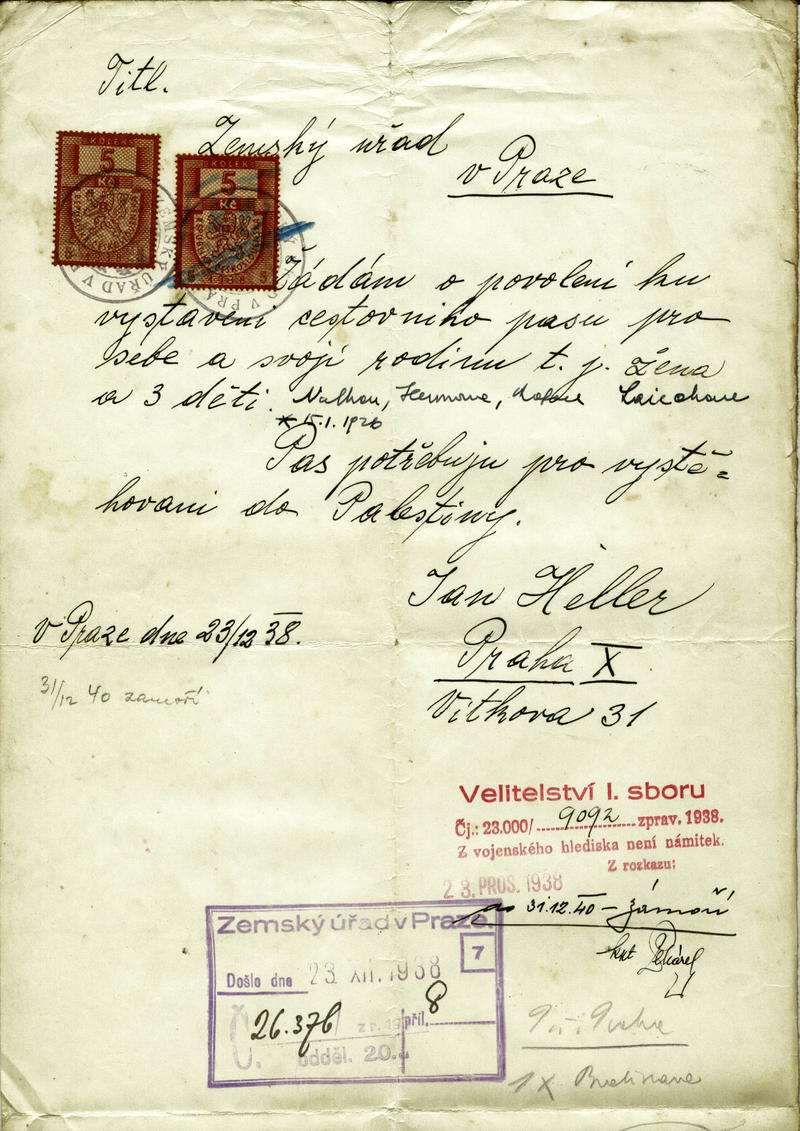 Titl.
Zemský úřad
v Praze
KOLEK
5
Kč
KOLEK
5
Kč
Žádám o povolení ku
vystavení cestovního pasu pro
sebe a svojí rodinu t. j. žena
a 3 děti.
* 15.1.1926
Pas potřebuju pro vystě=
hovani do Palestiny.
Jan Heller
Praha X
Vítkova 31
v Praze dne 23/12 38.
31/12 40 zamoří
Velitelství I. sboru
Čj.: 23.000/ 9092 zprav. 1938.
Z vojenského hlediska není námitek.
Z rozkazu:
23. PROS. 1938
do 31.12.40 – zámoří
Zemský úřad v Praze.
7
Došlo dne 23. XII. 1938
Č. 26.376/ z r. 19 příl. 8
odděl. 20.